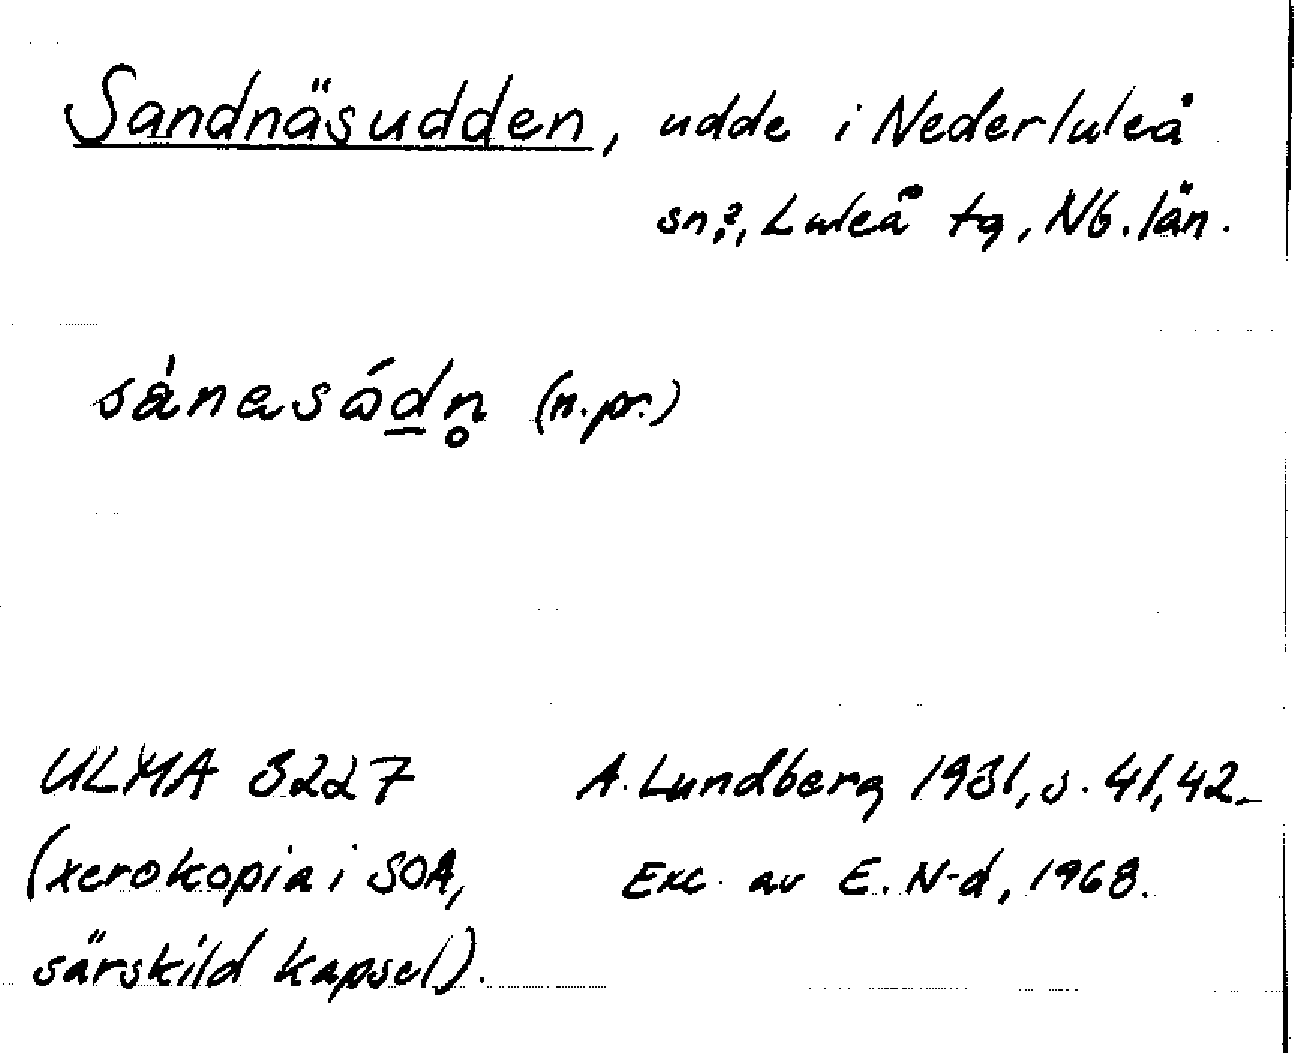 Sandnäsudden, udde i Nederluleå
sn?, Luleå tg, Nb. län.
sànasódn̥ (n.pr.)
ULMA 3227 A. Lundberg 1931, s. 41, 42.
(xerokopia i SOA, Exc. av E. N-d, 1968.
särskild kapsel).